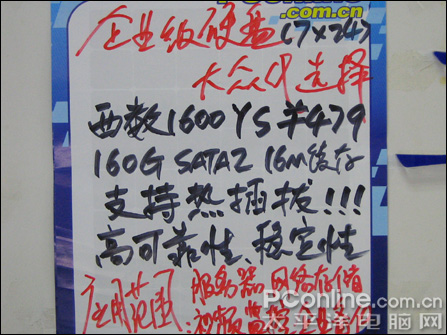 .com.cn
企业级硬盘(7×24)
大众的选择
西数1600YS ¥479
160G SATA2 16m缓存
支持热插拔!!!
高可靠性、稳定性
应用范围:服务器 网络存储
视频监控
PConline.com.cn
太平洋电脑网